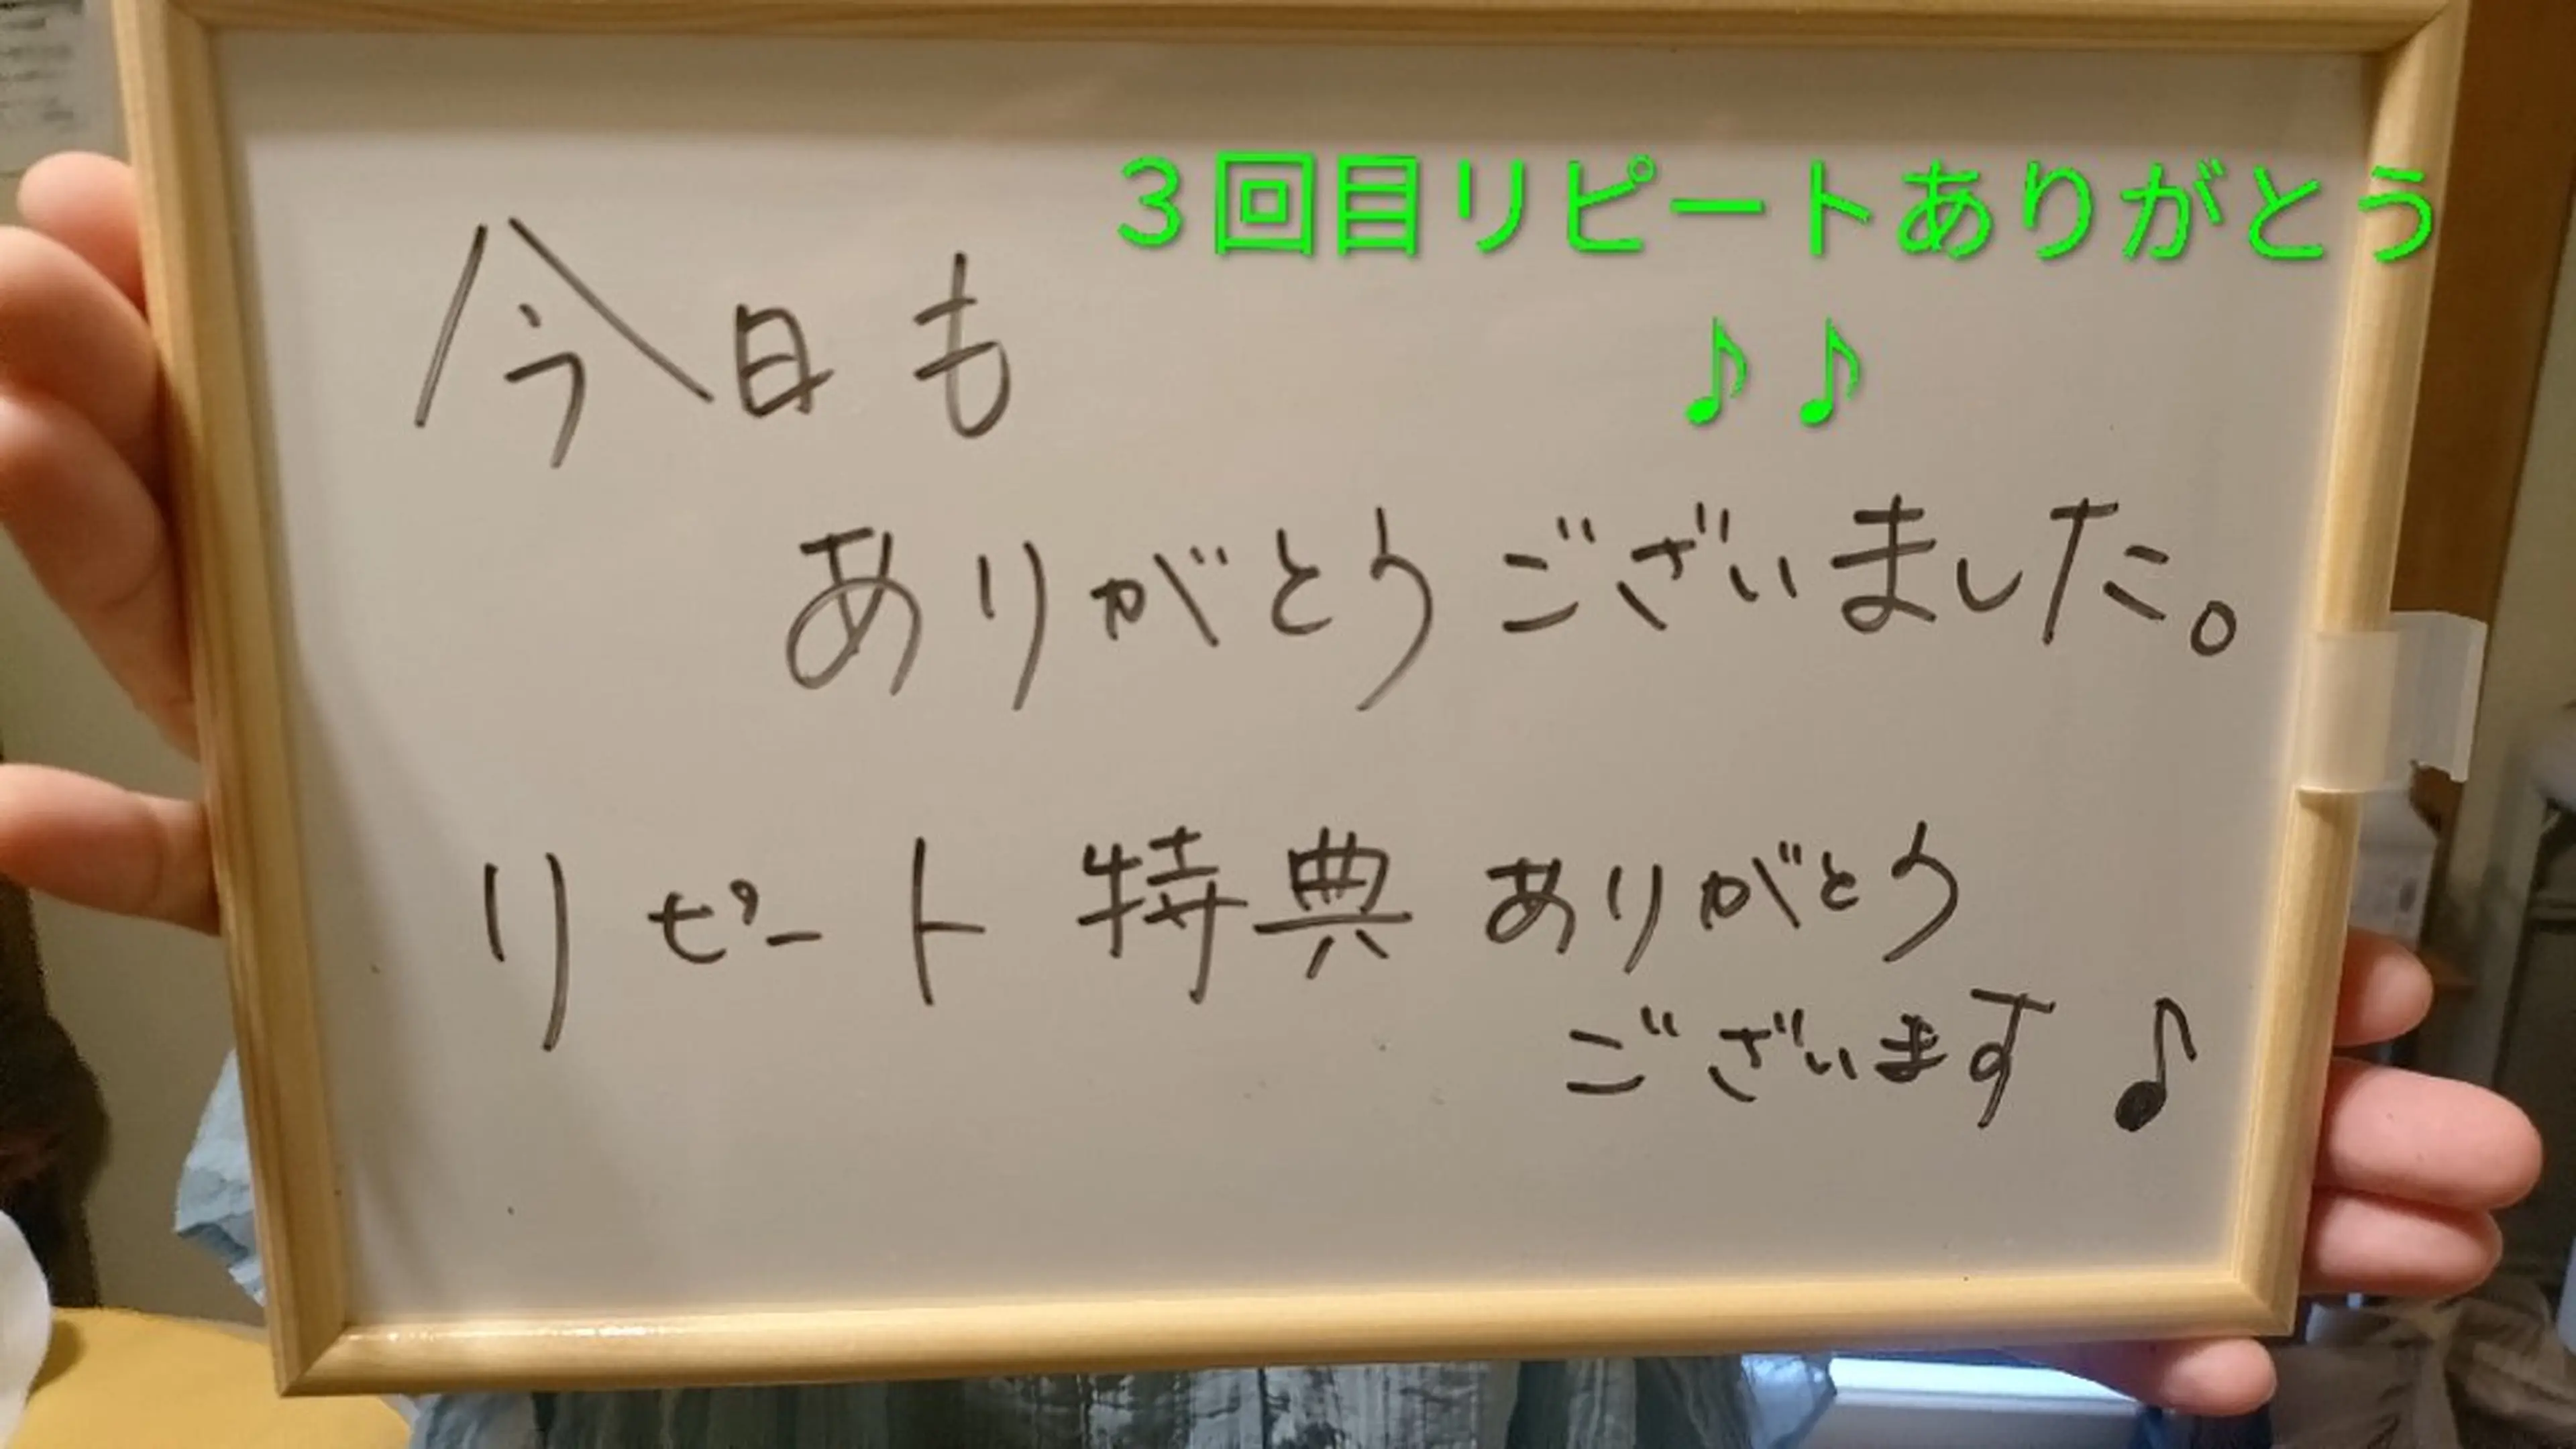 ３回目リピートありがとう
♪♪
今日も
ありがとうございました。
リピート特典ありがとう
ございます♪